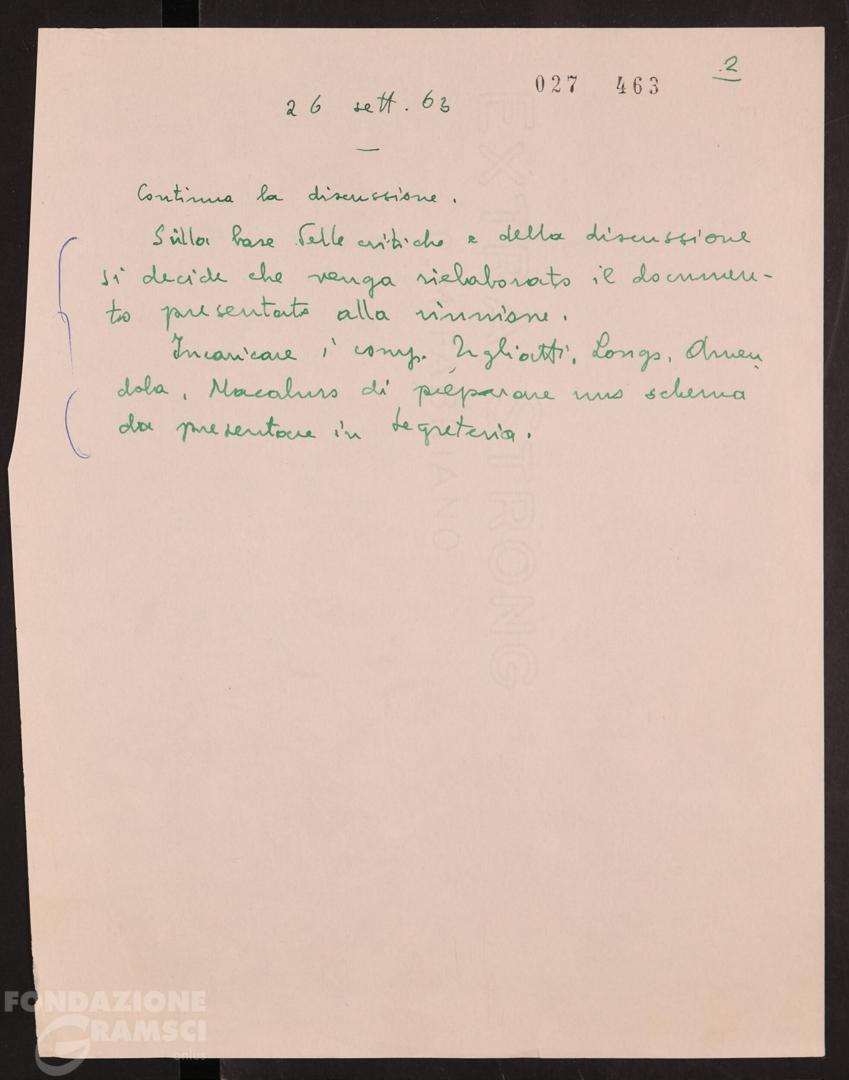 2
027 463
26 sett. 63
Continua la discussione.
Sulla base delle critiche e della discussione
si decide che venga rielaborato il documen-
to presentato alla riunione.
Incaricare i comp. Togliatti, Longo, Amen
dola, Macaluso di preparare uno schema
da presentare in Segreteria.
EXTRA STRONG
FABRIANO
FONDAZIONE
GRAMSCI
onlus